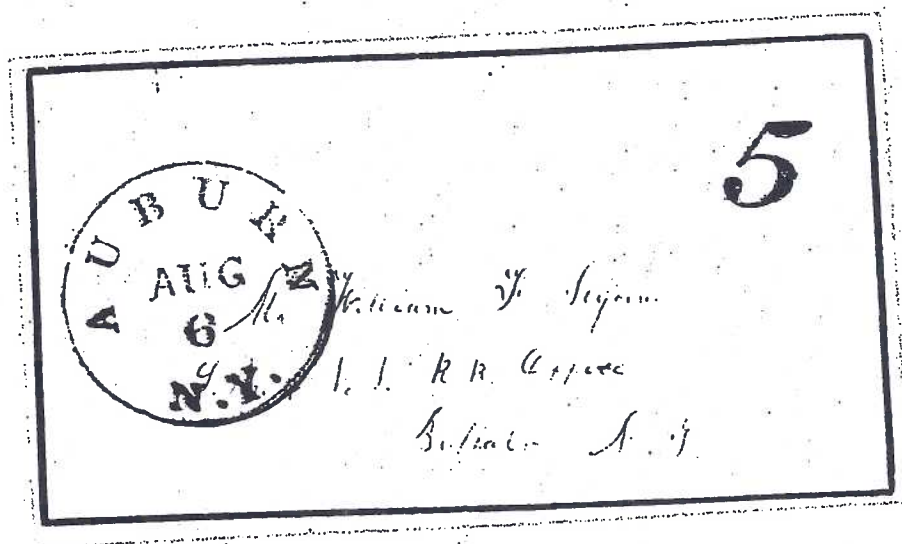 5
AUBURN
AUG
6
N.Y.
Mr William
R R Office
Buffalo N. Y